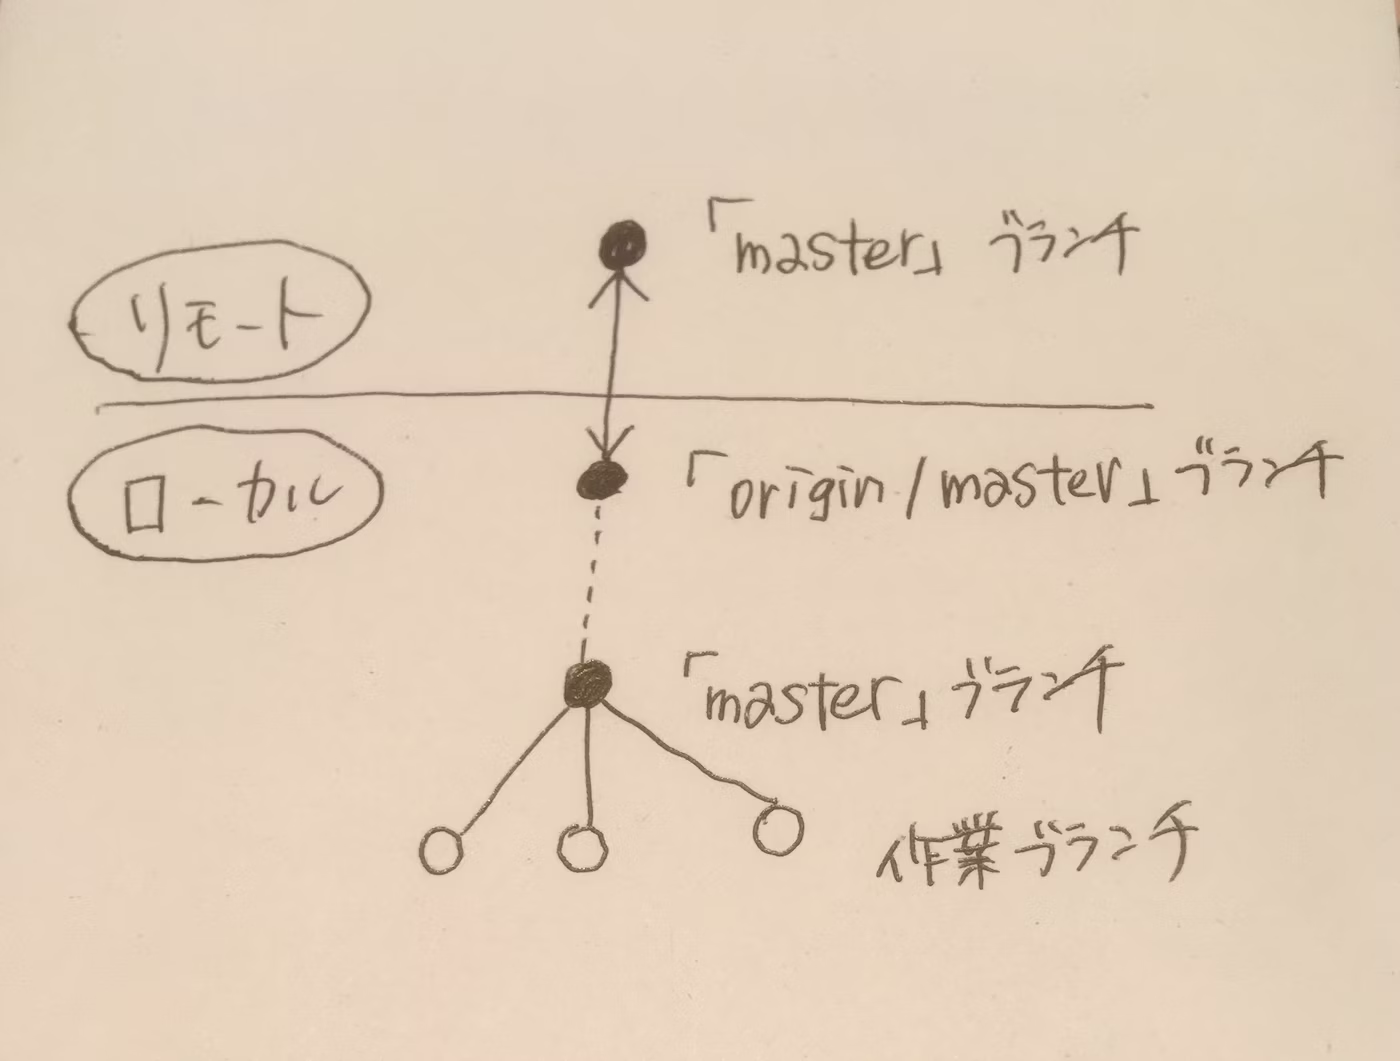 「master」ブランチ
リモート
ローカル
「origin/master」ブランチ
「master」ブランチ
作業ブランチ